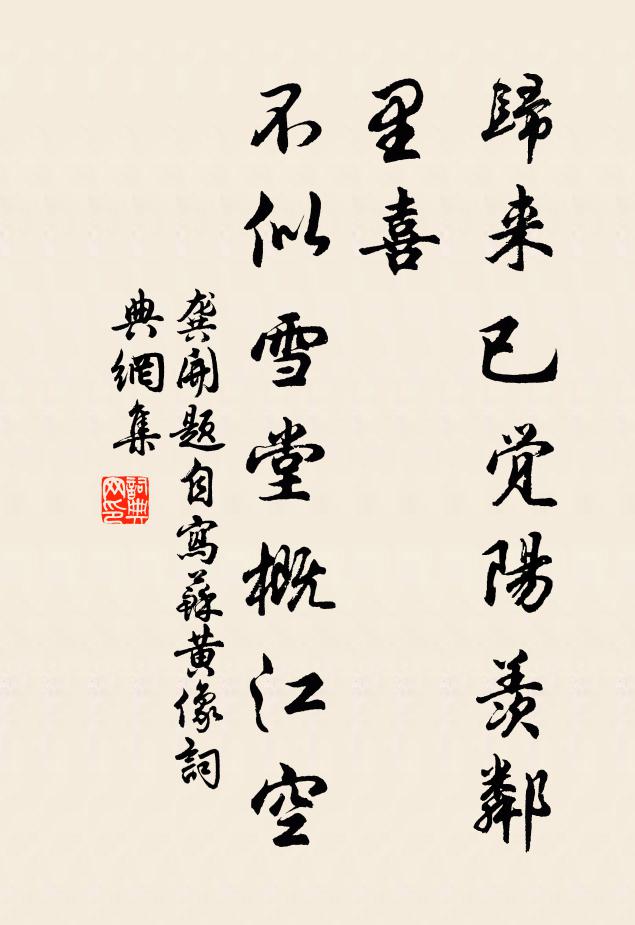 歸来已覺陽羨鄰
里喜
不似雪堂概江空
龔開題自寫蘇黄像詞
典網集
詞典
网印